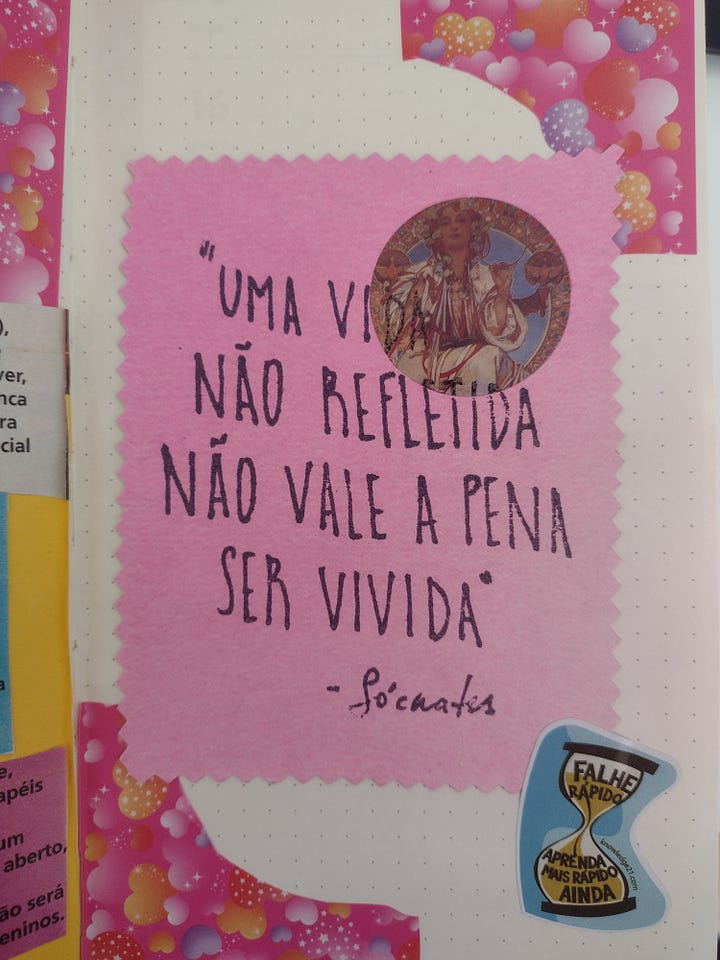 "UMA VIDA
NÃO REFLETIDA
NÃO VALE A PENA
SER VIVIDA"
- Sócrates
FALHE
RÁPIDO
APRENDA
MAIS RÁPIDO
AINDA
knowledge21.com
),
ver,
nca
ra
cial
a
e,
apéis
um
aberto,
ão será
eninos.